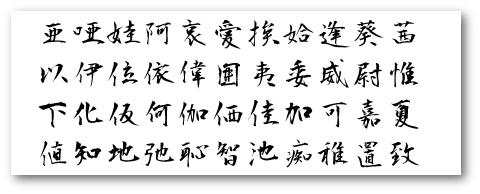 亜唖娃阿哀愛挨姶逢葵茜
以伊位依偉囲夷委威尉惟
下化仮何伽価佳加可嘉夏
値知地弛恥智池痴稚置致